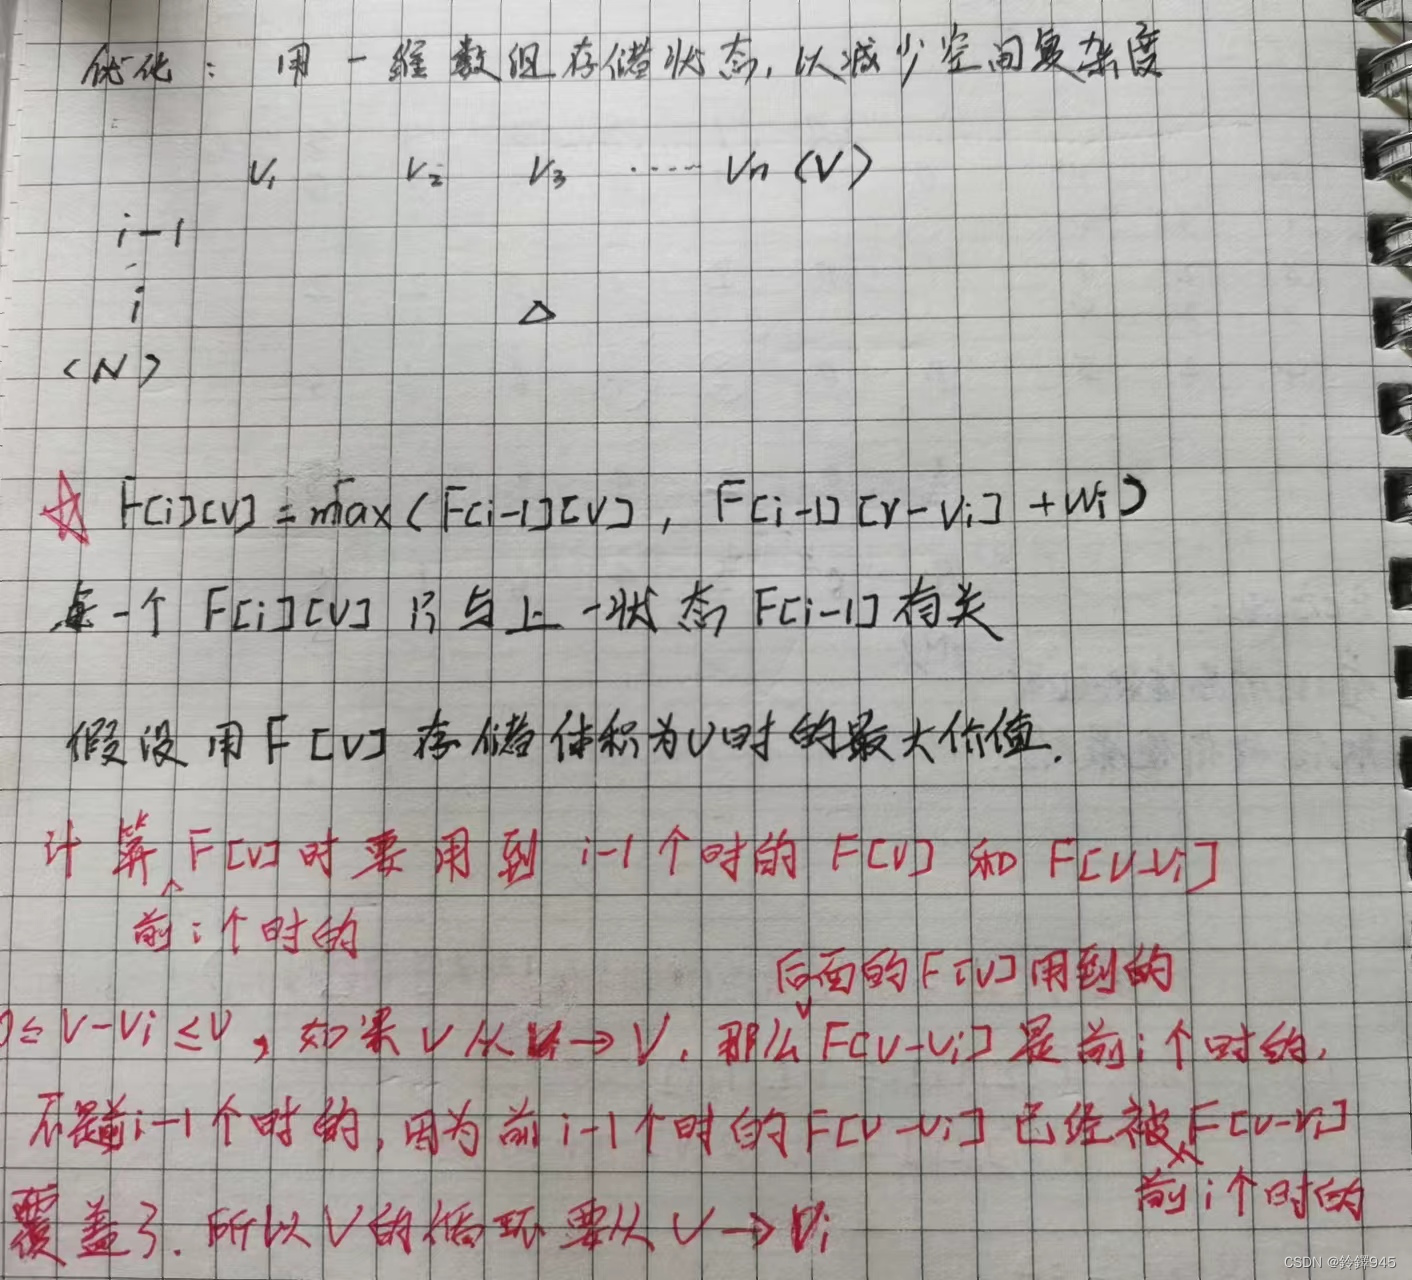 优化：用一维数组存储状态，以减少空间复杂度
V₁ V₂ V₃ ····· Vn (V)
i-1
i △
<N>
☆ F[i][V] = max(F[i-1][V], F[i-1][V-Vi] + Wi)
每一个 F[i][V] 只与上一状态 F[i-1] 有关
假设用 F[V] 存储体积为V时的最大价值.
计算 F[V] 时要用到 i-1个时的 F[V] 和 F[V-Vi]
前i个时的
后面的F[V]用到的
0≤V-Vi≤V，如果V从 → V，那么F[V-Vi]是前i个时的,
不是前i-1个时的，因为前i-1个时的F[V-Vi]已经被F[V-Vi]
前i个时的
覆盖了.所以V的循环要从V→Vi
CSDN @铃鐸945